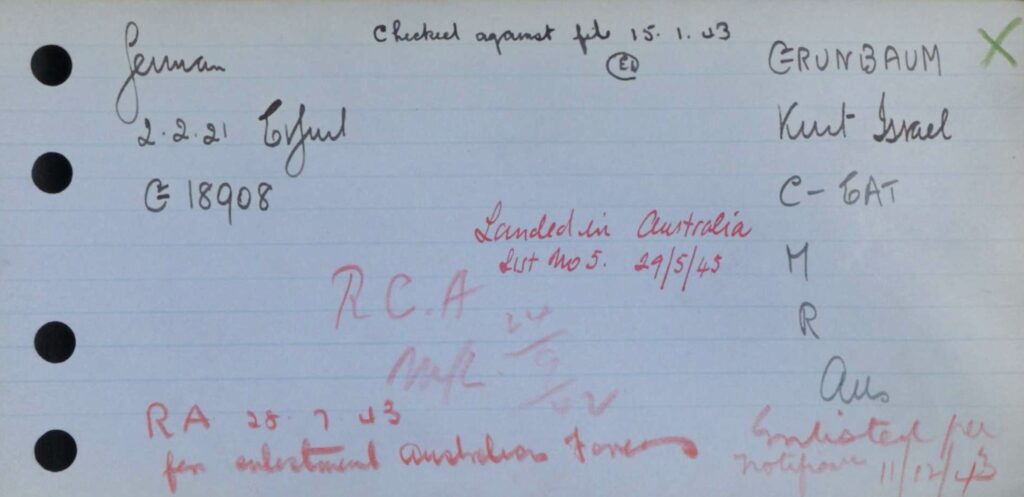 German
Checked against file 15.1.43
GRUNBAUM
X
ED
2.2.21 Erfurt
Kurt Israel
G 18908
C-CAT
Landed in Australia
M
List No 5. 29/5/45
R.C.A
R
24/9/42
Aus
RA 28.7 43
for enlistment Australian Forces
Enlisted per
11/12/43